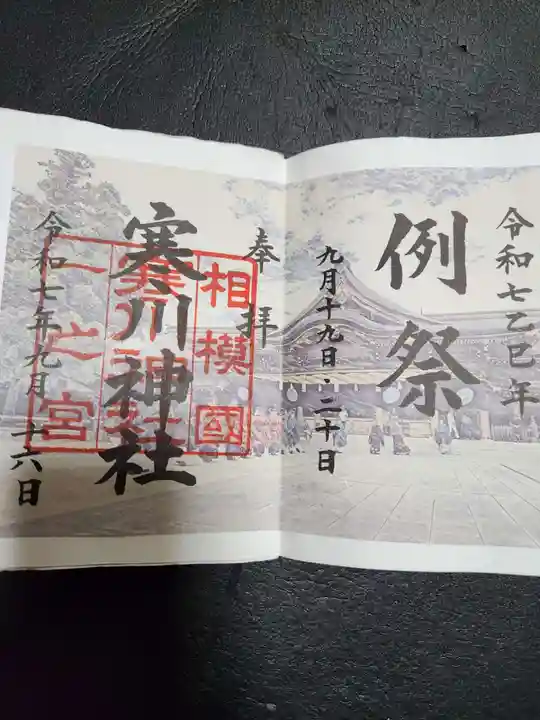 令和七乙巳年
例祭
九月十九日・二十日
奉拝
寒川神社
令和七年九月十六日
相模國
寒川神社
一之宮